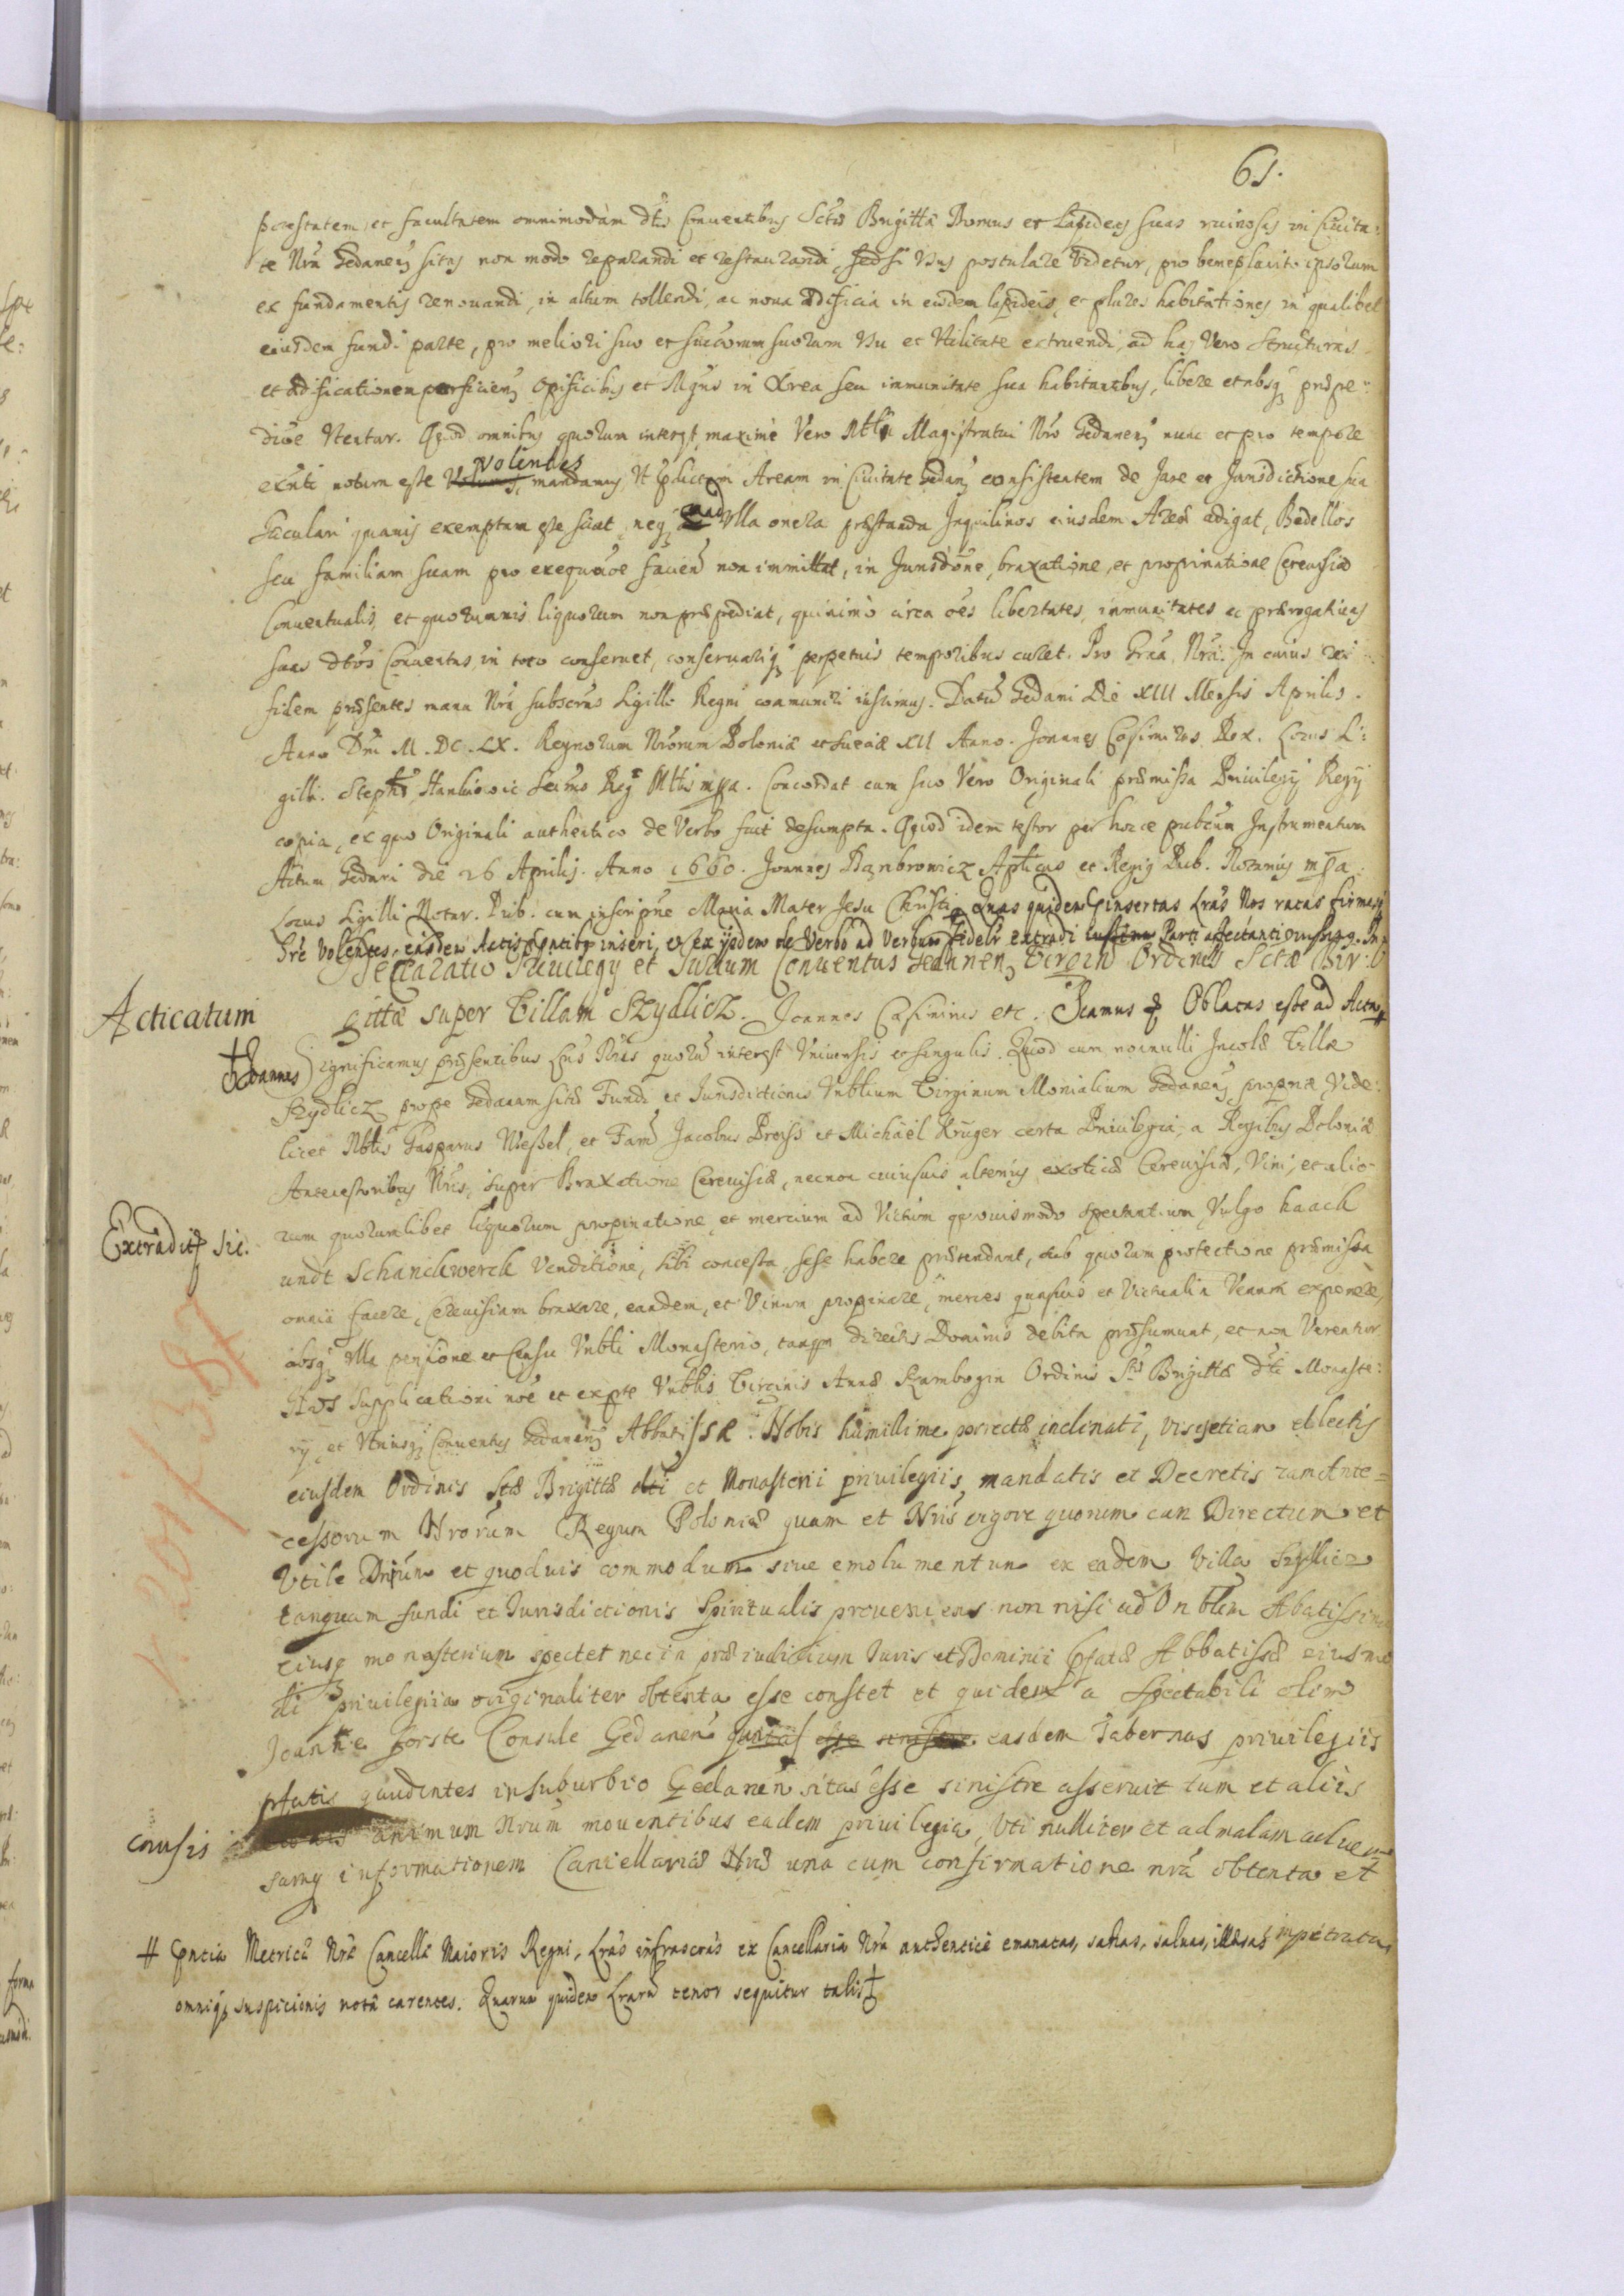 61.
potestatem, et facultatem omnimodam dtis Conventibus Sctae Brigittae Domus et Lapideas suas ruinosas in Civita:
te Nra Gedanen sitas non modo reparandi et restaurandi, sed si Usus postulare videtur, pro beneplacito ipsorum
ex fundamentis renovandi, in altum tollendi, ac nova aedificia in eisdem lapideis, et plures habitationes in qualibet
eiusdem fundi parte, pro meliori suo et succorum suorum Usu et Utilitate extruendi, ad has Vero Structuras
et aedificationem perficien Opificibus et Mgris in Area seu immunitate sua habitantibus, libere et absq praepe:
ditioe Utentur. Quod omnibus quorum interest, maxime Vero Nbli Magistratui Nro Gedanen nunc et pro tempore
exnti notum esse Volumus volentes, mandamus, Ut pdictam Aream in Civitate Gedan consistentem de Jure et Jurisdictione sua
Saeculari quamis exemptam esse sciat, neq ad ulla onera praestanda Inquilinos eiusdem Areae adigat, Bedellos
seu familiam suam pro exequutioe facien non immittat, in Jurisdone, braxatione, et propinatione Cerevisiae
Conventualis, et quorumuis liquorum non praepediat, quinimo circa oes libertates, immunitates ac praerogativas
suas dtos Conventus in toto conservet, conservariq perpetuis temporibus curet. Pro Graa Nra. In cuius rei
fidem praesentes manu Nra subscras Sigillo Regni communiri iussimus. Datum Gedani Die XIII Mensis Aprilis.
Anno Dni M.DC.LX. Regnorum Nrorum Poloniae et Sueciae XII Anno. Joannes Casimirus Rex. Locus Si:
gilli. Stephs Hankiewic Secrius Reg Mttis mpa. Concordat cum suo Vero Originali praemissa Privilegij Regij
copia, ex quo Originali authentico de Verbo fuit desumpta. Quod idem testor per hocce publcum Instrumentum
Actum Gedani die 26 Aprilis. Anno 1660. Joannes Dąnbrowicz Aplicus et Regig Pub. Notarius mpa.
Locus Sigilli Notar. Pub. cum inscripne Maria Mater Jesu Christi. Quas quidem insertas Lras Nos ratas firmasq
Hre Volentes, easdem Actis pntibs inseri, et ex ijsdem de Verbo ad Verbum fideli extradi iussimus Parti affectanti
Declaratio Privilegij et Jurium Conventus Gedanen Virgin Ordinis Sctae Bir:
Acticatum
gittae super Villam Szydlicz. Joannes Casimirus etc. Oblatas esse ad Acta #
Joannes
Significamus praesentibus Lris Nris quorum interest Universis et singulis. Quod cum nonnulli Incolae Villae
Szydlicz prope Gedanum sitae Fundi et Jurisdictionis Vnblium Virginum Monialium Gedanen propriae Vide:
licet Nblis Gasparus Wessel, et Fam Jacobus Preiss et Michael Krüger certa Privilegia, a Regibus Poloniae
Antecessoribus Nris, super Braxatione Cerevisiae, necnon cuiusuis alterius exoticae Cerevisiae, Vini, et alio
rum quorumlibet liquorum propinatione, et mercium ad Victum quovismodo spectantium Vulgo haack
Extraditq sic.
undt Schanckwerck Venditione, sibi concessa, sese habere praetendant, sub quorum protectione praemissa
omnia facere, Cerevisiam braxare, eandem, et Vinum propinare, merces quasuis et Victualia Venum exponere,
absq ulla pensione et Censu Vnbli Monasterio, tanqm directis Dominis debita praesumant, et non Verentur
Nos Supplicationi noe et ex pte Vnblis Virginis Annae Krumbegin Ordinis Stae Brigittae dti Monaste:
rij, et Utriusq Conventus Gedanen Abbatissae Nobis humillime porrectae inclinati, visis etiam et lectis
eiusdem Ordinis Stae Brigittae dti et Monasterii privilegiis, mandatis et Decretis tam Ante=
cessorum Nrorum Regum Poloniae quam et Nris vigore quorum cum Directum et
Vtile Dnium et quoduis commodum siue emolumentum ex eadem Villa Szydlicz
tanquam fundi et Iurisdictionis Spiritualis proveniens non nisi ad Vnblem Abatissam
eiusq monasterium spectet nec in praeiudicium Iuris et Dominii pfatae Abbatissae eiusmo
di privilegiia originaliter obtenta esse constet et quidem a Spectabili olim
Joanne Forste Consule Gedanen easdem Tabernas privilegiis
pfatis gaudentes in suburbio Gedanen sitas esse sinistre asseruit tum et aliis
causis
animum Nrum moventibus eadem privilegia, Vti nulliter et ad malam
informationem Cancellariae Nrae una cum confirmatione nra obtenta et
impetrata
# pntia Metricae Nrae Cancellae Maioris Regni, Lras infrascras ex Cancellaria Nra authentice emanatas, sanas, salvas, illaesas
omniq suspicionis nota carentes. Quarum quidem Lrarum tenor sequitur talis